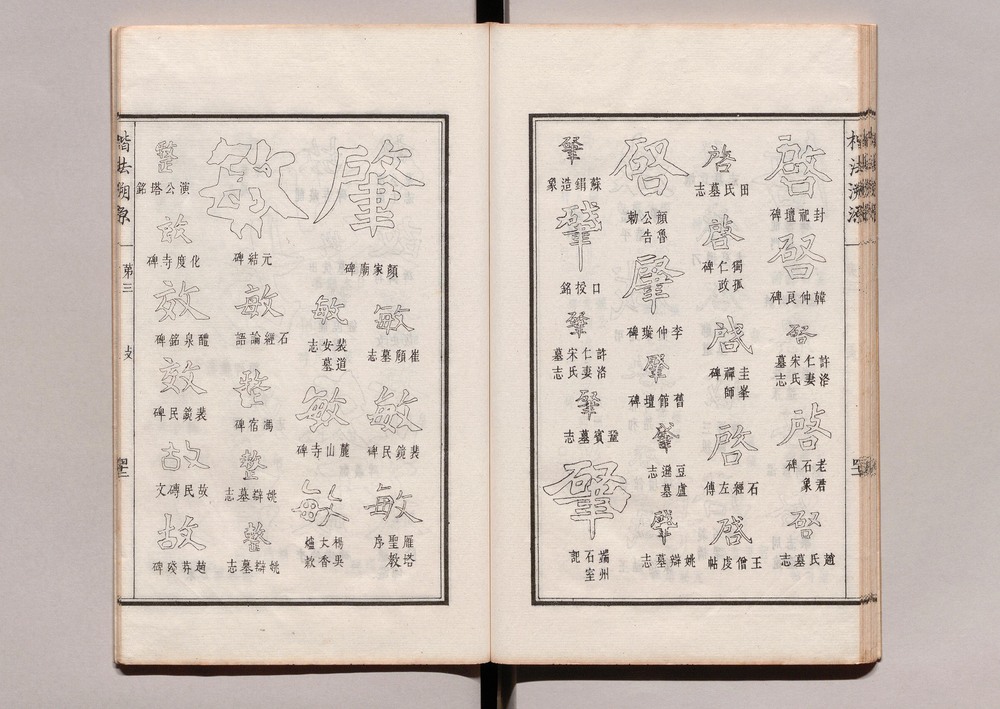 楷法溯源
啓
封祀壇碑
啓
韓仲良碑
啓
許洛仁妻宋氏墓志
啓
老君石象碑
啓
趙氏墓志
啓
田氏墓志
啓
獨孤仁政碑
啓
圭峯禪師碑
啓
石經左傳
啓
王僧虔帖
啓
顏魯公告勅
肇
李仲璇碑
肇
舊館壇碑
肇
豆盧遜墓志
肇
姚辯墓志
肇
蘇絹造象
肇
口授銘
肇
許洛仁妻宋氏墓志
肇
鞏賓墓志
肇
端州石室記
肇
顏家廟碑
敏
崔頠墓志
敏
裴鏡民碑
敏
雁塔聖教序
敏
裴安道墓志
敏
麓山寺碑
敏
楊吳大香爐款
敏
元結碑
敏
石經論語
整
馮宿碑
整
姚辯墓志
整
姚辯墓志
整
演公塔銘
效
化度寺碑
效
醴泉銘碑
效
裴鏡民碑
故
故民磚文
故
趙芬殘碑
楷法溯源
第三
攴